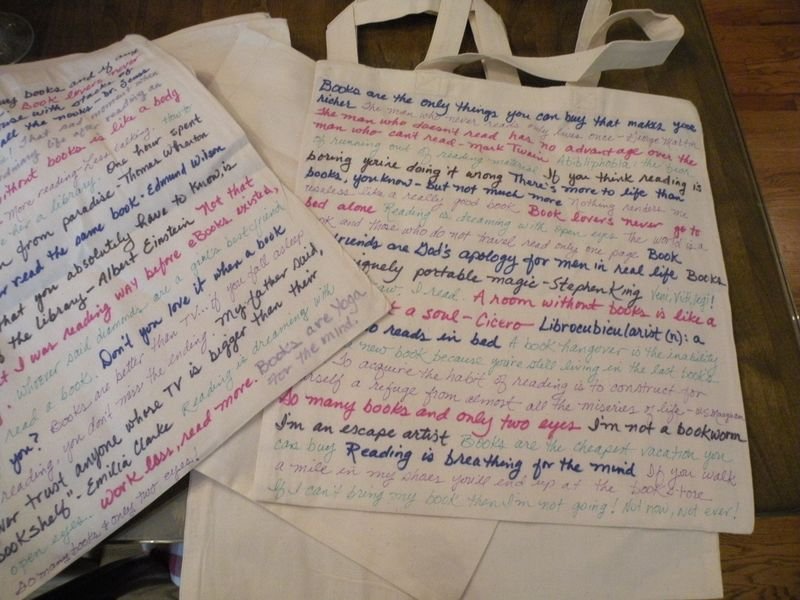 my books and if any
Book lovers never
house with stacks of
all the nooks - Dr. Seuss
That sad moment when
ordinary life after reading an
without books is like a body
More reading - Less talking.
like a library. One hour spent
from paradise - Thomas Wharton
read the same book - Edmund Wilson
that you absolutely have to know is
of the library - Albert Einstein Not that
I was reading WAY before eBooks existed,
Whoever said diamonds are a girl's best friend
read a book. Don't you love it when a book
you? Books are better than TV... if you fall asleep
reading, you don't miss the ending. My father said,
never trust anyone whose TV is bigger than their
bookshelf" - Emilia Clarke Reading is dreaming with
open eyes. Work less, read more. Books are yoga
for the mind.
So many books & only two eyes!
Books are the only things you can buy that makes you
richer The man who never reads only lives once - George Martin
The man who doesn't read has no advantage over the
man who can't read - Mark Twain Abibliphobia: the fear
of running out of reading material If you think reading is
boring you're doing it wrong There's more to life than
books, you know - But not much more Nothing renders me
useless like a really good book Book lovers never go to
bed alone Reading is dreaming with open eyes The world is a
book and those who do not travel read only one page Book
friends are God's apology for men in real life Books
uniquely portable magic - Stephen King Veni, Vidi, Legi!
I read. A room without books is like a
a soul - Cicero Librocubicularist (n): a
reads in bed A book hangover is the inability
new book because you're still living in the last book's
To acquire the habit of reading is to construct for
yourself a refuge from almost all the miseries of life - W.S. Maugham
So many books and only two eyes I'm not a bookworm
I'm an escape artist Books are the cheapest vacation you
can buy Reading is breathing for the mind If you walk
a mile in my shoes you'll end up at the bookstore
If I can't bring my book then I'm not going! Not now, Not ever!